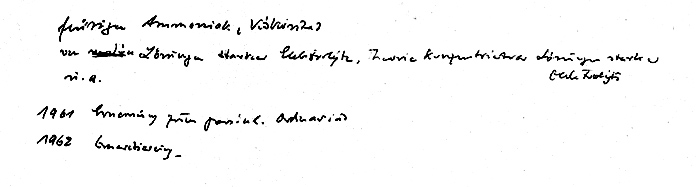 flüssigem Ammoniak, Viskosität
von Lösungen starker Elektrolyte, Theorie konzentrierter Lösungen starker
Elektrolyte
u. a.
1961 Ernennung zum persönl. Ordinarius
1962 Emeritierung